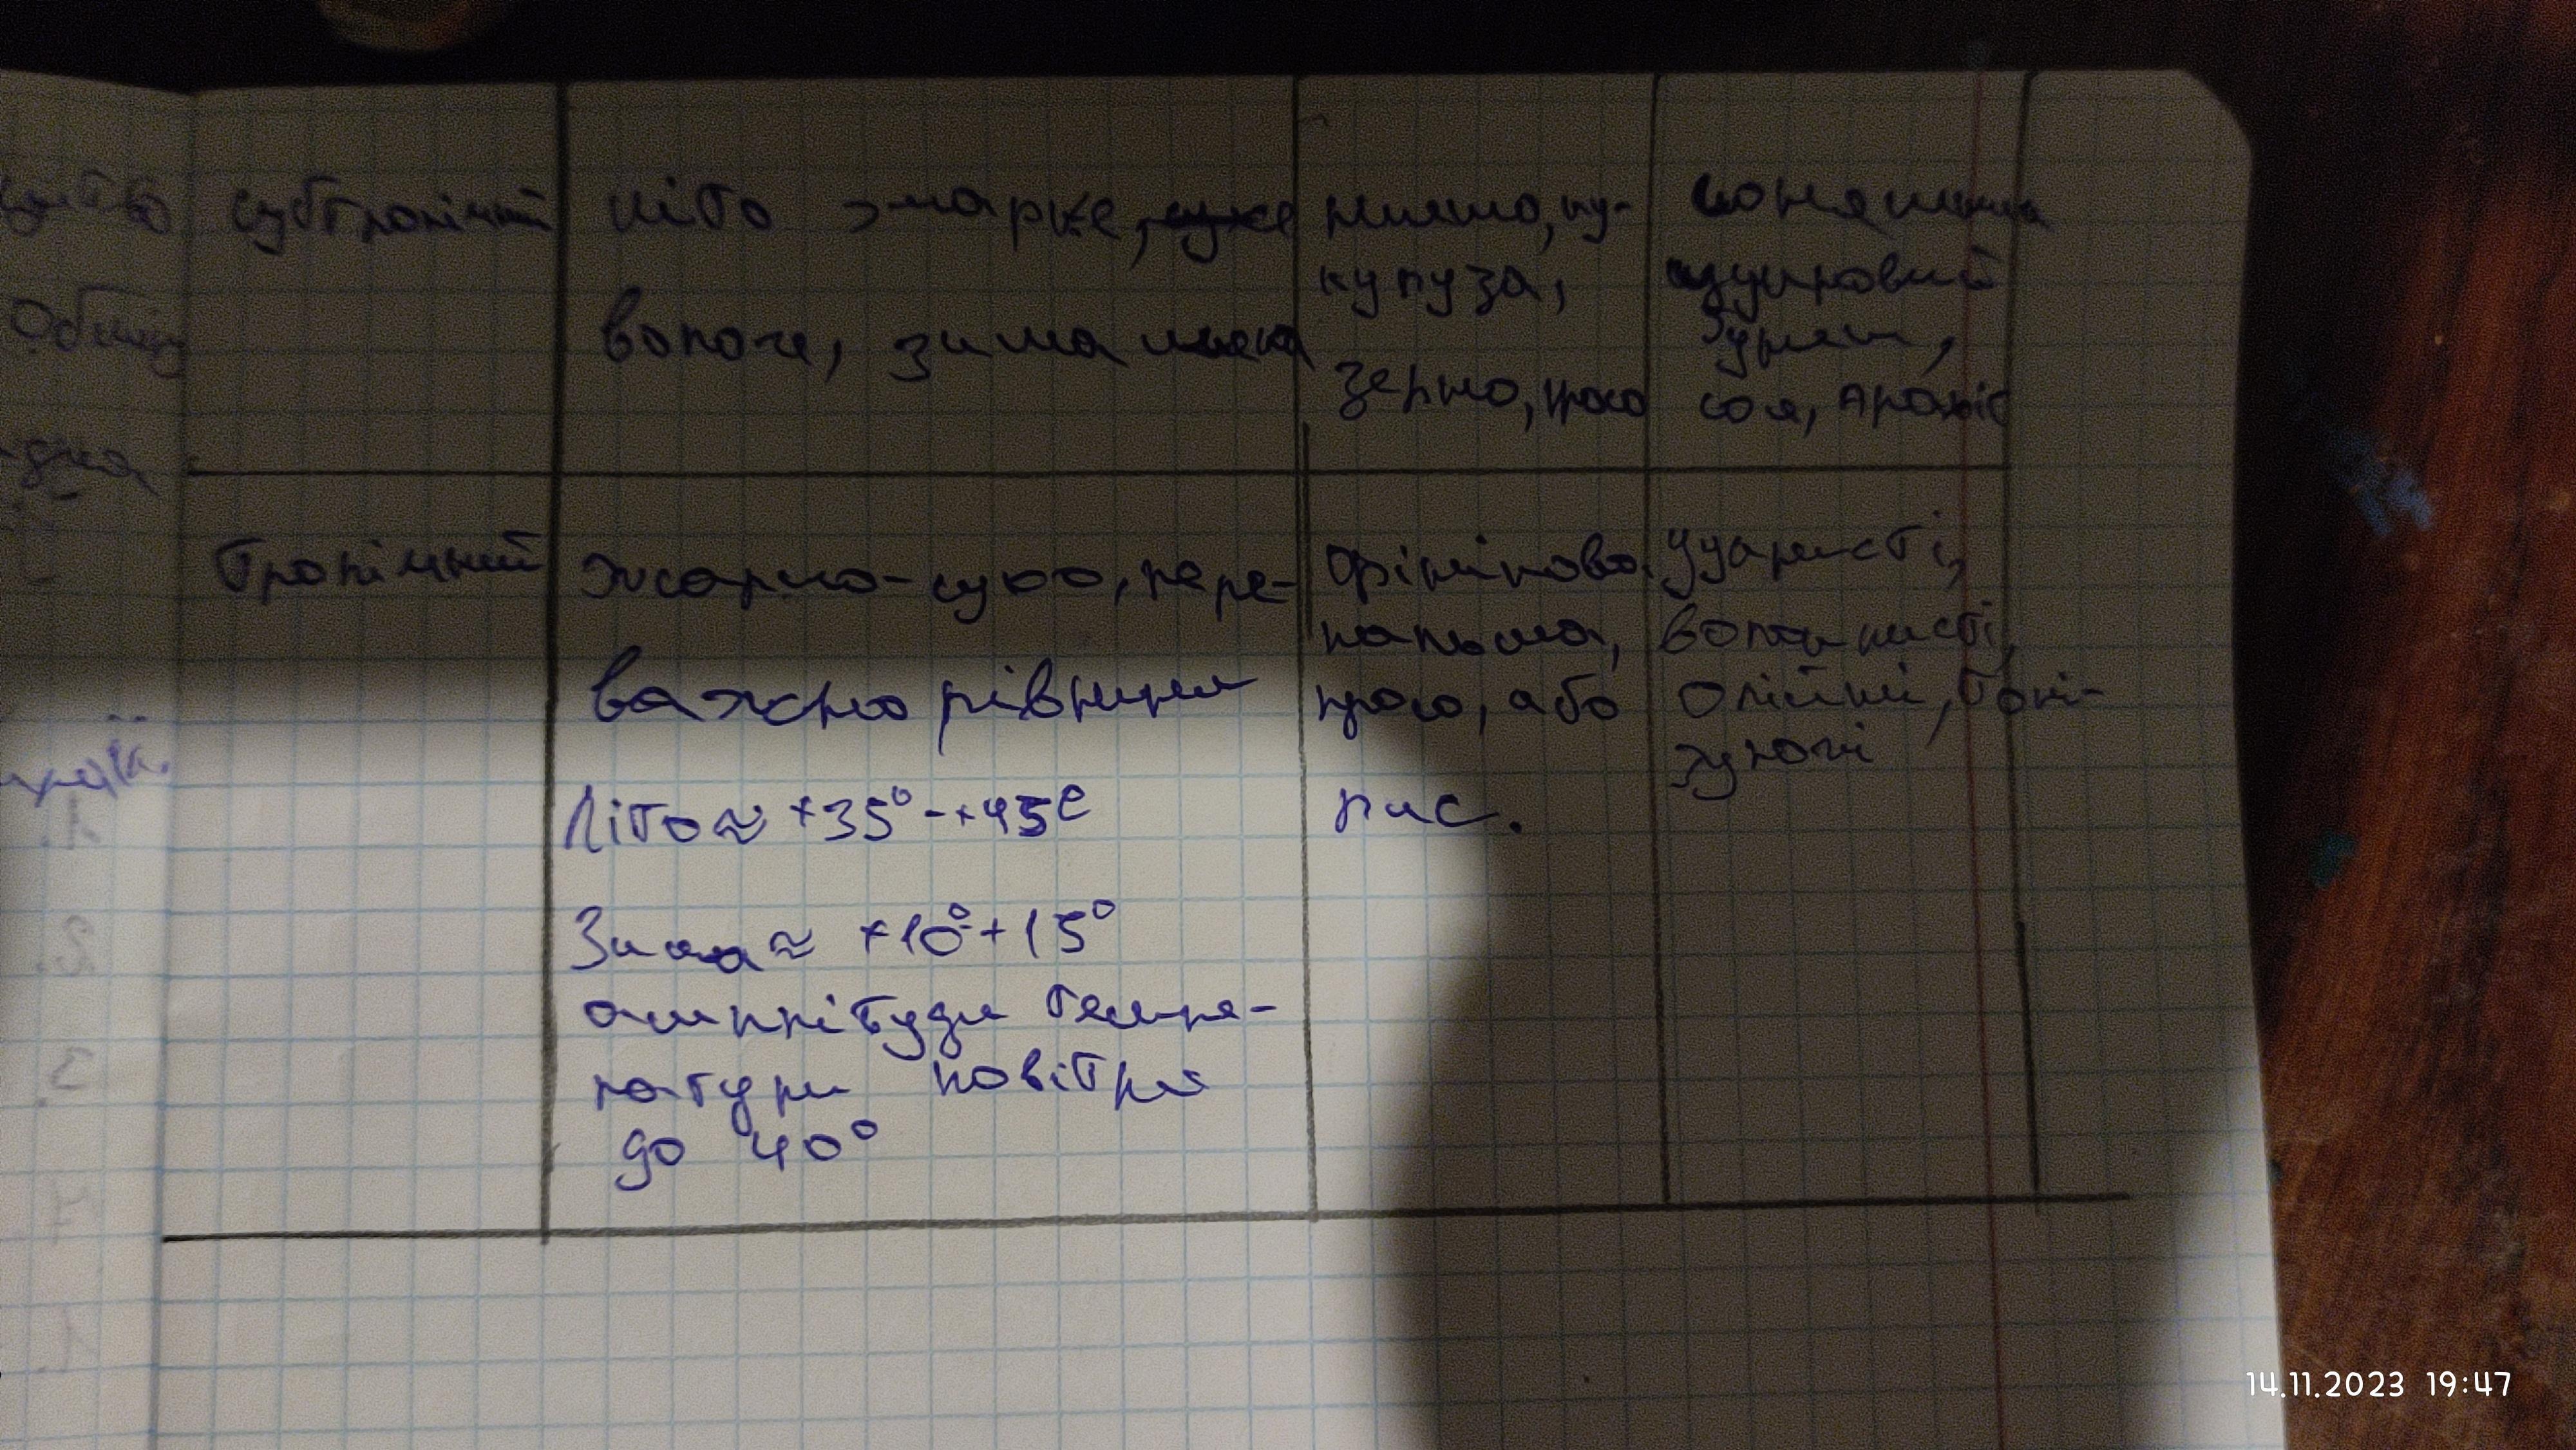 субтропічний
літо жарке,
вологе, зима
ку-
купуза,
зерно, просо
соняшник
цукровий
буряк,
соя, арахіс
тропічний
Жарко-сухо, пере-
важно рівнини
Літо ≈ +35° - +45 С
Зима ≈ +10° - +15°
амплітуди темпе-
ратури повітря
до 40°
Фінікова
пальма,
просо, або
рис.
Цукристі,
волокнисті,
олійні, тоні-
зуючі
Обмін
1.
2.
3.
14.11.2023 19:47